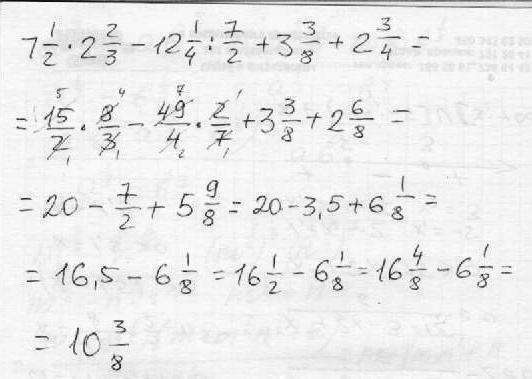 7 1/2 · 2 2/3 − 12 1/4 : 7/2 + 3 3/8 + 2 3/4 =
= 15/2 · 8/3 − 49/4 · 2/7 + 3 3/8 + 2 6/8 =
= 20 − 7/2 + 5 9/8 = 20 − 3,5 + 6 1/8 =
= 16,5 − 6 1/8 = 16 1/2 − 6 1/8 = 16 4/8 − 6 1/8 =
= 10 3/8